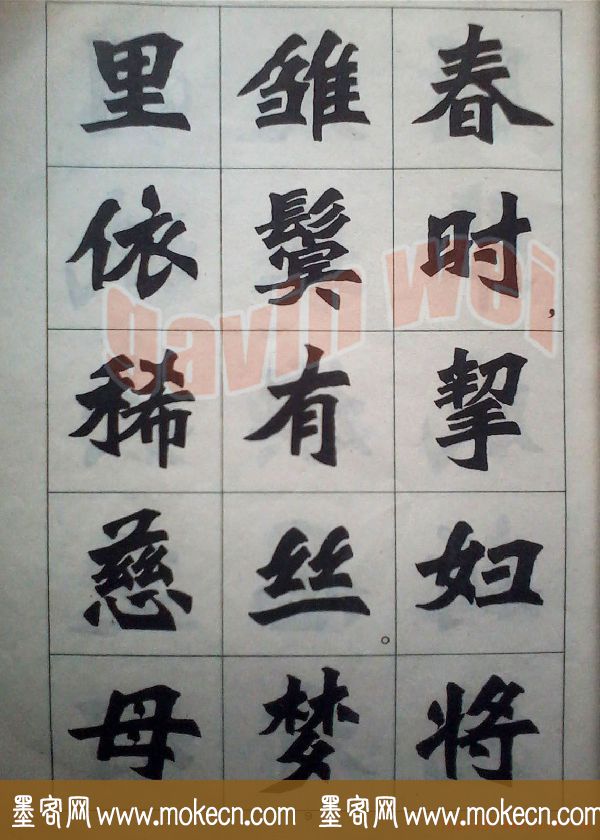 春时,挈妇将
雏鬓有丝。梦
里依稀慈母
gavin wei
墨客网 www.mokecn.com 墨客网 www.mokecn.com